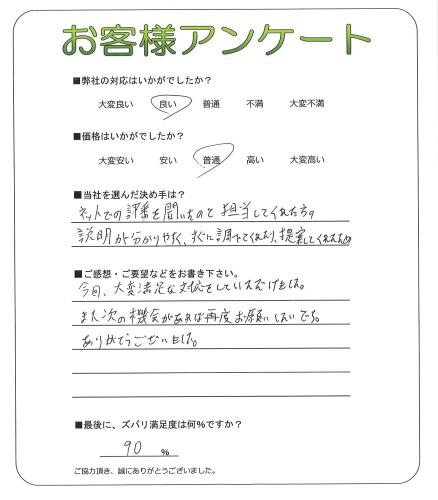 お客様アンケート
■弊社の対応はいかがでしたか?
大変良い 良い 普通 不満 大変不満
■価格はいかがでしたか?
大変安い 安い 普通 高い 大変高い
■当社を選んだ決め手は?
ネットでの評番を聞いたのと担当してくれた方の
説明が分かりやすく、すぐに調べてくれたり、提案してくれたため
■ご感想・ご要望などをお書き下さい。
今回、大変満足な対応をしていただけました。
また次の機会があれば再度お願いしたいです。
ありがとうございました。
■最後に、ズバリ満足度は何%ですか?
90 %
ご協力頂き、誠にありがとうございました。